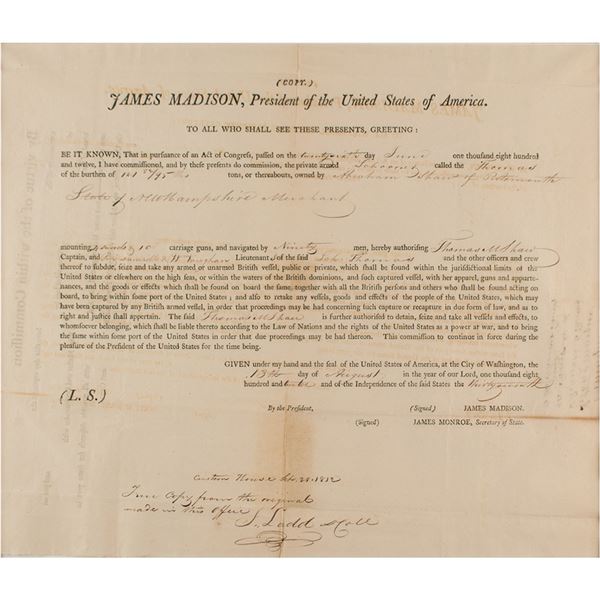 (COPY.)
JAMES MADISON, President of the United States of America.
TO ALL WHO SHALL SEE THESE PRESENTS, GREETING:
BE IT KNOWN, That in pursuance of an Act of Congress, passed on the day June one thousand eight hundred
and twelve, I have commissioned, and by these presents do commission, the private armed Schooner called the Thomas
of the burthen of tons, or thereabouts, owned by Abraham Shaw of Portsmouth
State of Merchant
mounting 10 carriage guns, and navigated by Ninety men, hereby authorising Thomas M Shaw
Captain, and W Vaughan Lieutenant of the said Sch. Thomas and the other officers and crew
thereof to subdue, seize and take any armed or unarmed British vessel, public or private, which shall be found within the jurisdictional limits of the
United States or elsewhere on the high seas, or within the waters of the British dominions, and such captured vessel, with her apparel, guns and appurte-
nances, and the goods or effects which shall be found on board the same, together with all the British persons and others who shall be found acting on
board, to bring within some port of the United States; and also to retake any vessels, goods and effects of the people of the United States, which may
have been captured by any British armed vessel, in order that proceedings may be had concerning such capture or recapture in due form of law, and as to
right and justice shall appertain. The said Thomas M Shaw is further authorised to detain, seize and take all vessels and effects, to
whomsoever belonging, which shall be liable thereto according to the Law of Nations and the rights of the United States as a power at war, and to bring
the same within some port of the United States in order that due proceedings may be had thereon. This commission to continue in force during the
pleasure of the President of the United States for the time being.
GIVEN under my hand and the seal of the United States of America, at the City of Washington, the
13th day of August in the year of our Lord, one thousand eight
hundred and and of the Independence of the said States the
(L. S.)
By the President, (Signed) JAMES MADISON.
(Signed) JAMES MONROE, Secretary of State.
Custom House 1812
True Copy from the original
made in this Office
S. Ladd Coll